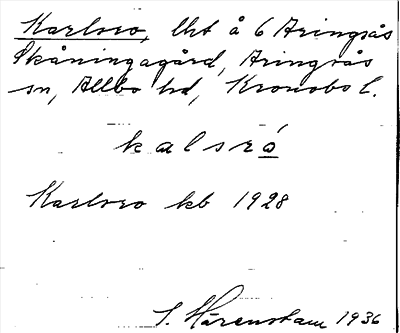 Karlsro, lht å 6 Aringsås
Skåningagård, Aringsås
sn, Allbo hd, Kronobo l.
kalsró
Karlsro kb 1928
S. Hårenstam 1936